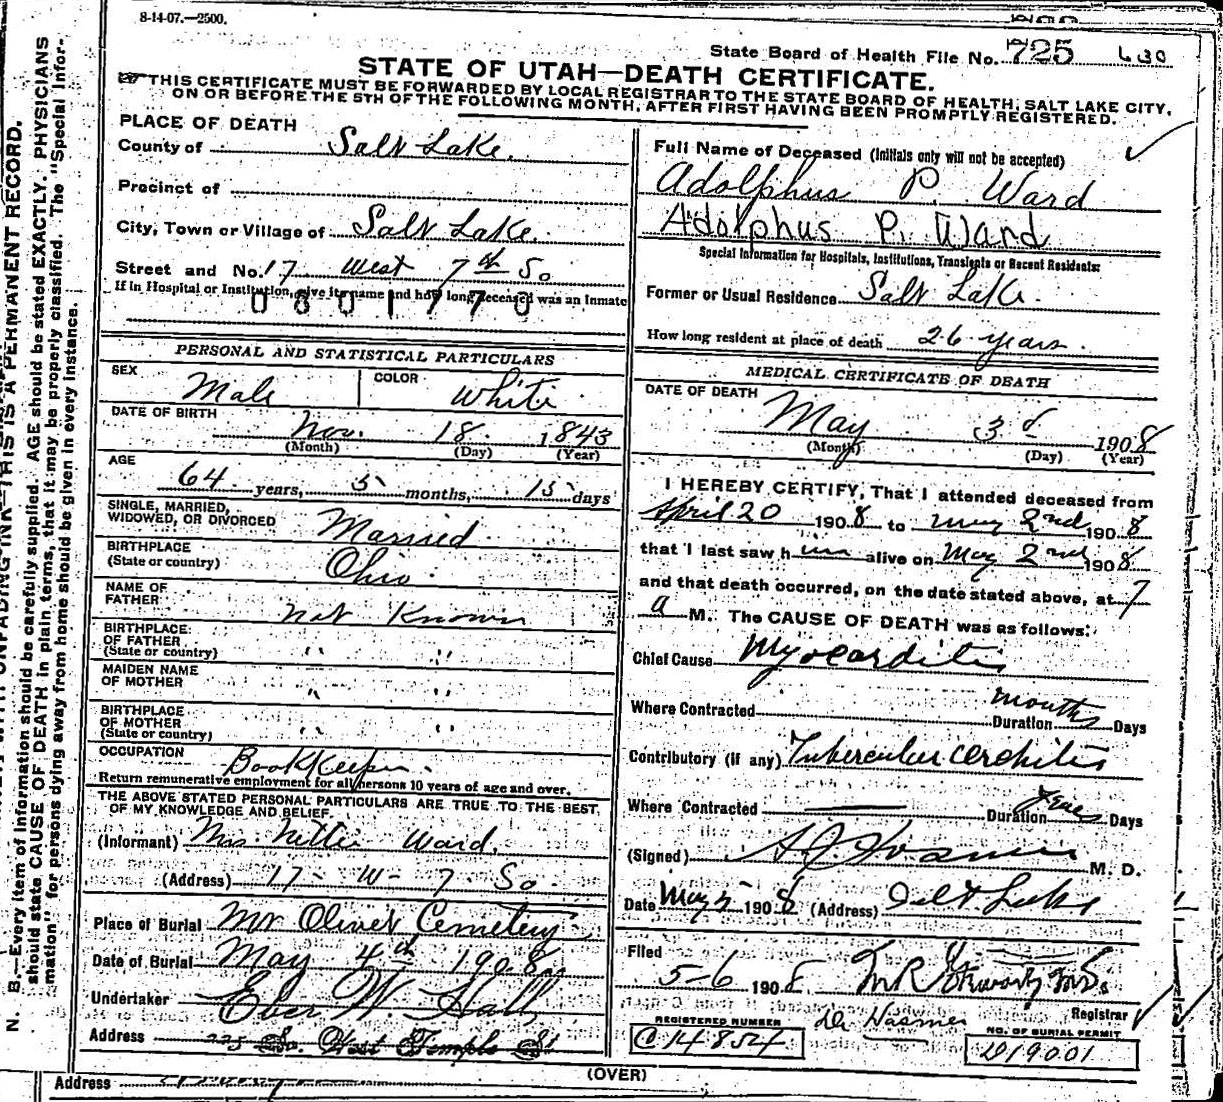 8-14-07.—2500.
State Board of Health File No. 725 630
STATE OF UTAH—DEATH CERTIFICATE.
THIS CERTIFICATE MUST BE FORWARDED BY LOCAL REGISTRAR TO THE STATE BOARD OF HEALTH, SALT LAKE CITY,
ON OR BEFORE THE 5TH OF THE FOLLOWING MONTH, AFTER FIRST HAVING BEEN PROMPTLY REGISTERED.
N. B.—Every item of information should be carefully supplied. AGE should be stated EXACTLY. PHYSICIANS
should state CAUSE OF DEATH in plain terms, that it may be properly classified. The "Special Infor-
mation" for persons dying away from home should be given in every instance.
UNFADING INK—THIS IS A PERMANENT RECORD.
PLACE OF DEATH
County of Salt Lake.
Precinct of
City, Town or Village of Salt Lake.
Street and No. 17 West 7th So
If in Hospital or Institution, give its name and how long deceased was an Inmate
0801770
PERSONAL AND STATISTICAL PARTICULARS
SEX Male COLOR White
DATE OF BIRTH Nov. 18. 1843
(Month) (Day) (Year)
AGE 64 years, 5 months, 15 days
SINGLE, MARRIED,
WIDOWED, OR DIVORCED Married
BIRTHPLACE
(State or country) Ohio.
NAME OF
FATHER not Known
BIRTHPLACE
OF FATHER
(State or country) " "
MAIDEN NAME
OF MOTHER " "
BIRTHPLACE
OF MOTHER
(State or country) " "
OCCUPATION Book Keeper.
Return remunerative employment for all persons 10 years of age and over.
THE ABOVE STATED PERSONAL PARTICULARS ARE TRUE TO THE BEST
OF MY KNOWLEDGE AND BELIEF.
(Informant) Mrs. Nettie Ward.
(Address) 17- W- 7. So.
Place of Burial Mt Olivet Cemetery
Date of Burial May 4th 1908
Undertaker Eber W. Hall
Address 225 So. West Temple St
Full Name of Deceased (Initials only will not be accepted)
Adolphus P. Ward
Adolphus P. Ward
Special Information for Hospitals, Institutions, Transients or Recent Residents:
Former or Usual Residence Salt Lake.
How long resident at place of death 26 years.
MEDICAL CERTIFICATE OF DEATH
DATE OF DEATH
May 3d 1908
(Month) (Day) (Year)
I HEREBY CERTIFY, That I attended deceased from
April 20 1908 to May 2nd 1908
that I last saw him alive on May 2nd 1908
and that death occurred, on the date stated above, at 7
a M. The CAUSE OF DEATH was as follows:
Chief Cause Myocarditis
Where Contracted Duration months Days
Contributory (if any) Tubercular orchitis
Where Contracted Duration years Days
(Signed) M. D.
Date May 5 1908 (Address) Salt Lake
Filed
5-6 1908
Registrar
Dr Hasmer
REGISTERED NUMBER
C 14854
NO. OF BURIAL PERMIT
D19001
(OVER)
Address